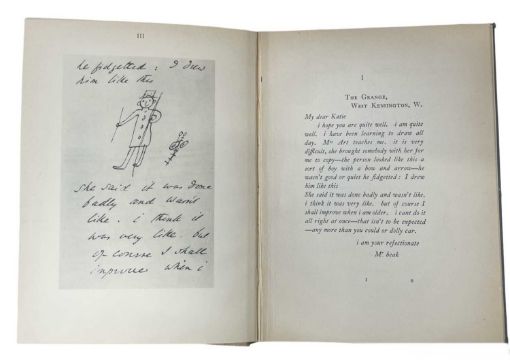 III
he fidgetted : I drew
him like this
she said it was done
badly and wasn't
like. i think it
was very like. but
of course I shall
improve when i
I
THE GRANGE,
WEST KENSINGTON, W.
My dear Katie
i hope you are quite well. i am quite
well. i have been learning to draw all
day. Mrs Art teaches me. it is very
difficult, she brought somebody with her for
me to copy—the person looked like this a
sort of boy with a bow and arrow—he
wasn't good or quiet he fidgetted: I drew
him like this
She said it was done badly and wasn't like,
i think it was very like. but of course I
shall improve when i am older. i cant do it
all right at once—that isn't to be expected
—any more than you could or dolly car.
i am your refectionate
Mr beak
1 9